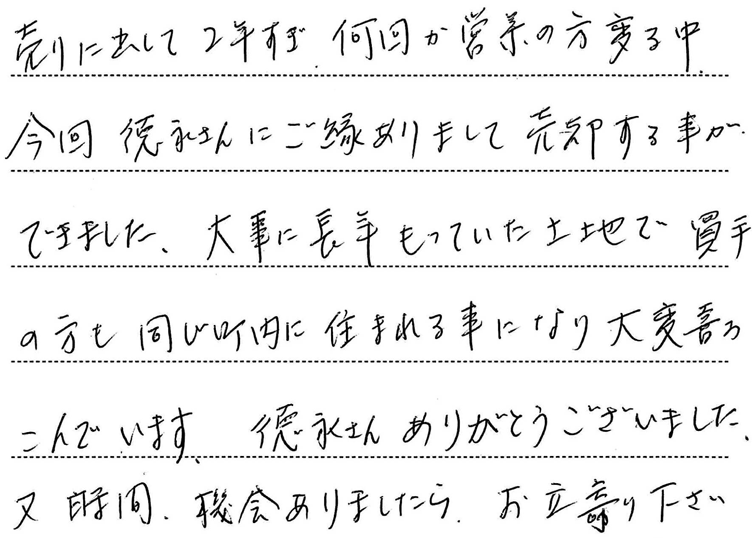 売りに出して2年すぎ、何回か営業の方変る中、
今回 徳永さんにご縁ありまして 売却する事が
できました、大事に長年もっていた土地で 買手
の方も 同じ町内に 住まれる事になり 大変喜ろ
こんでいます、徳永さん ありがとうございました、
又 時間、機会ありましたら、お立寄り下さい